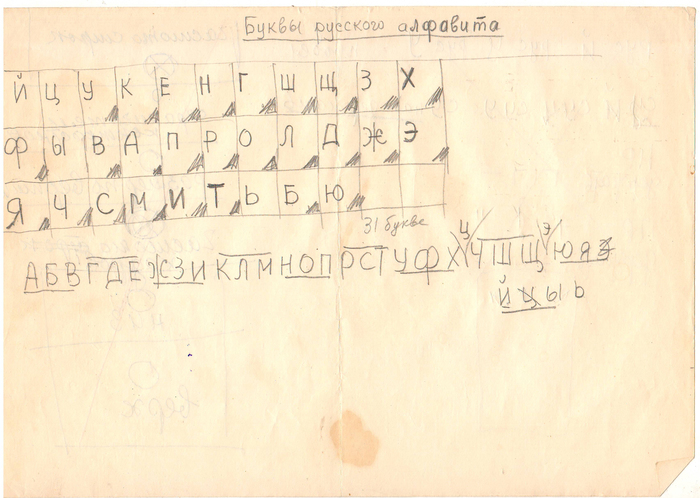 Буквы русского алфавита
Й Ц У К Е Н Г Ш Щ З Х
Ф Ы В А П Р О Л Д Ж Э
Я Ч С М И Т Ь Б Ю
31 букве
Ц Э
А Б В Г Д Е Ж З И К Л М Н О П Р С Т У Ф Х Ч Ш Щ Ю Я
Й Ц Ы Ь